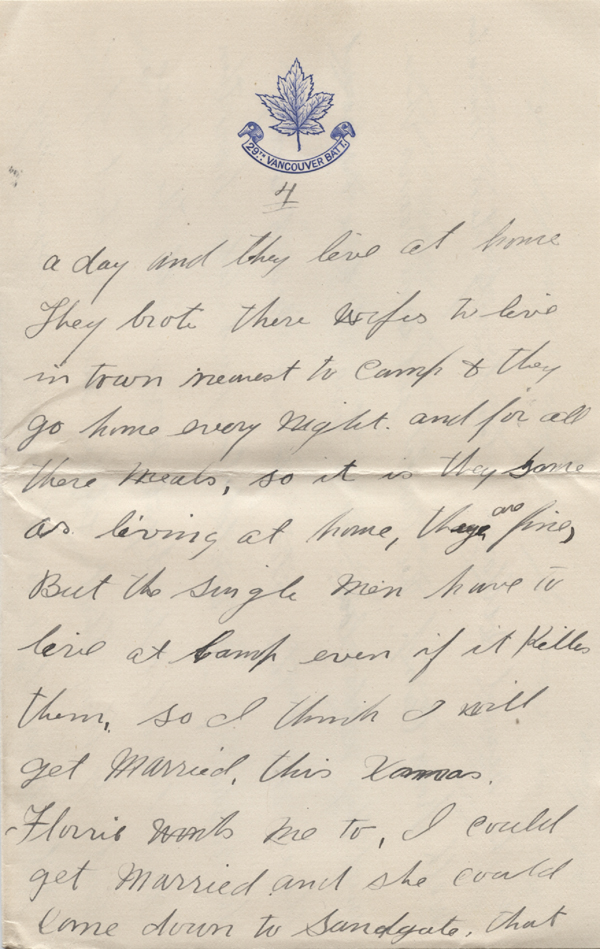 29TH VANCOUVER BATT.
4
a day and they live at home
They brote there wifes to live
in town nearest to Camp & they
go home every Night. and for all
there Meals, so it is they same
as living at home, they are fine,
But the single Men have to
live at Camp even if it Killes
them, so I think I will
get Married, this Xamas.
Florrie wonts me to, I could
get Married and she could
Come down to Sandgate, that